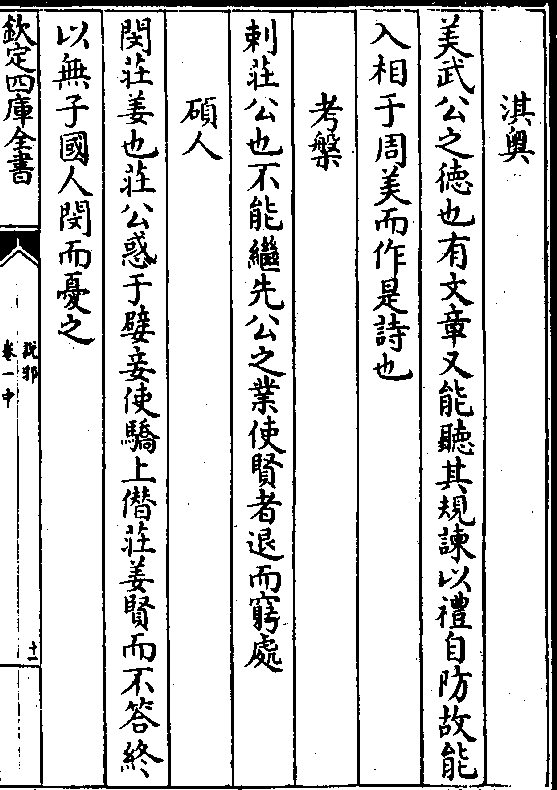 淇奧
美武公之徳也有文章又能聽其規諫以禮自防故能
入相于周美而作是詩也
考槃
刺莊公也不能繼先公之業使賢者退而窮處
碩人
閔莊姜也莊公惑于嬖妾使驕上僭莊姜賢而不答終
以無子國人閔而憂之
欽定四庫全書
説郛
卷一中
十一